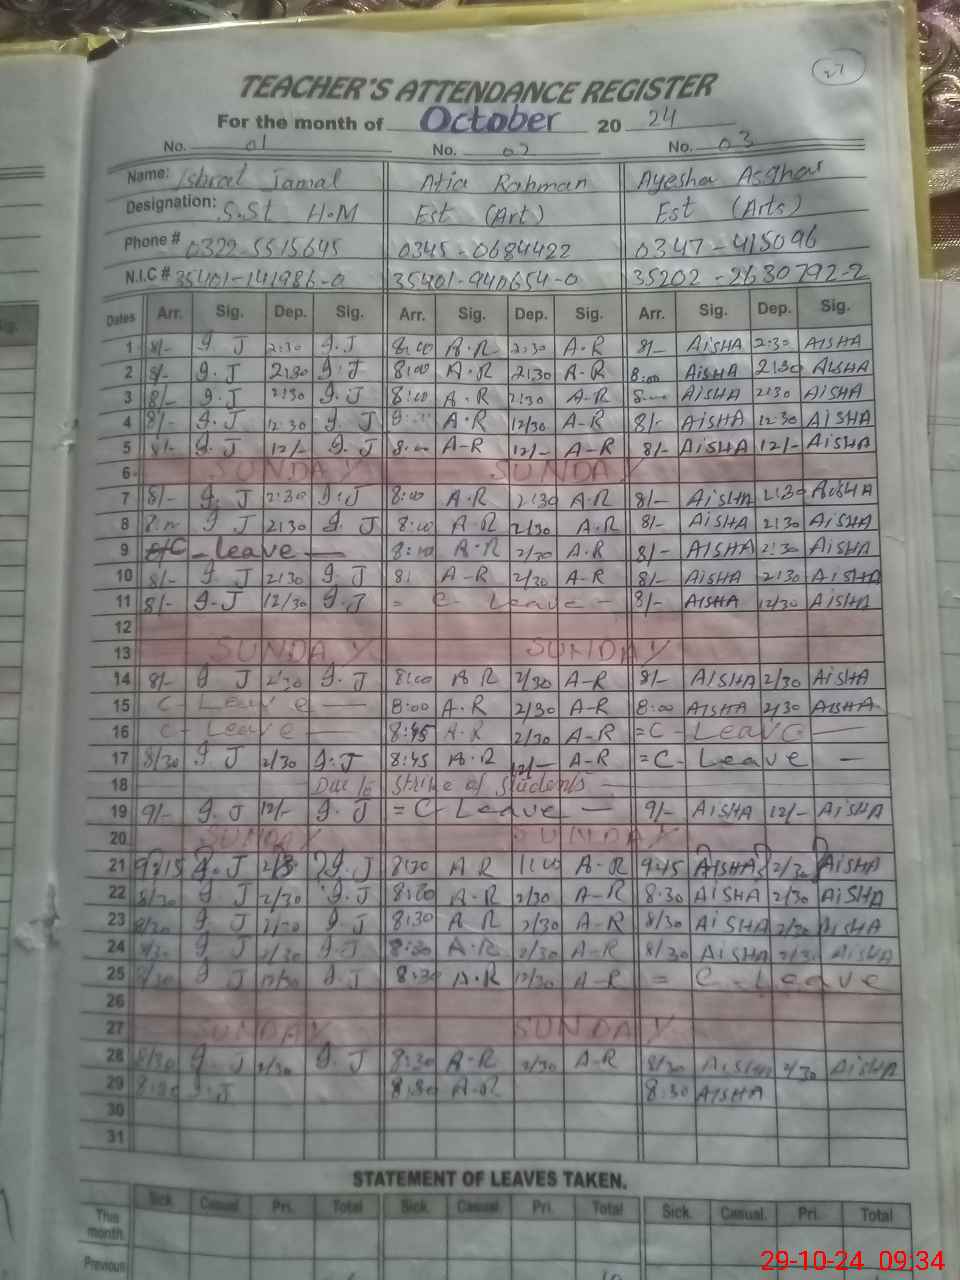 27
TEACHER'S ATTENDANCE REGISTER
For the month of October 20 24
No. 01 No. 02 No. 03
Name: Ishrat Jamal Atia Rahman Ayesha Asghar
Designation: S.St H.M Est (Art) Est (Arts)
Phone # 0322-5515645 0345-0684422 0347-415096
N.I.C # 35401-141986-0 35401-940654-0 35202-2630792-2
Dates Arr. Sig. Dep. Sig. Arr. Sig. Dep. Sig. Arr. Sig. Dep. Sig.
1 8/- g.J 2:30 g.J 8:00 A.R 2:30 A-R 8/- AiSHA 2:30 AISHA
2 8/- g.J 2:30 g.J 8:00 A.R 2:30 A-R 8:00 AiSHA 2:30 AISHA
3 8/- g.J 2:30 g.J 8:00 A.R 2:30 A-R AiSHA 2:30 AISHA
4 8/- g.J 12:30 g.J A.R 12/30 A-R 8/- AiSHA 12:30 AISHA
5 8/- g.J 12/- g.J 8:00 A-R 12/- A-R 8/- AiSHA 12/- AiSHA
6 SUNDAY SUNDAY
7 8/- g.J 2:30 g.J 8:00 A.R 2:30 A-R 8/- AiSHA 2:30 AiSHA
8 8:00 g J 2:30 g.J 8:00 A.R 2/30 A.R 8/- AiSHA 2:30 AiSHA
9 C-leave — 8:00 A.R 2/30 A.R 8/- AISHA 2:30 AiSHA
10 8/- g.J 2:30 g.J 8: A-R 2/30 A-R 8/- AiSHA 2:30 AiSHA
11 8/- g.J 12/30 g.J = C- Leave - 8/- AiSHA 12/30 AiSHA
12
13 SUNDAY SUNDAY
14 8/- g J 2/30 g.J 8:00 A R 2/30 A-R 8/- AISHA 2/30 AiSHA
15 C- Leave — 8:00 A.R 2/30 A-R 8:00 AISHA 2/30 AISHA
16 C- Leave — 8:45 A.R 2/30 A-R =C- Leave —
17 8/30 g.J 2/30 g.J 8:45 A.R 12/- A-R =C- Leave —
18 Due to Strike of Students
19 9/- g.J 12/- g.J = C- Leave — 9/- AiSHA 12/- AiSHA
20 SUNDAY SUNDAY
21 9:15 g.J g.J 8:30 A R 11:00 A-R 9:45 AISHA 2/30 AiSHA
22 8/30 g.J 2/30 g.J A-R 2/30 A-R 8:30 AiSHA 2/30 AiSHA
23 8/30 g J 2/30 g.J 8:30 A R 2/30 A-R 8/30 AiSHA 2/30 AiSHA
24 8/30 g J 2/30 g.J 8:30 A.R 2/30 A-R 8/30 AiSHA 2/30 AISHA
25 8/30 g J 12/30 g.J 8:30 A.R 12/30 A-R = C-Leave
26
27 SUNDAY SUNDAY
28 8/30 g.J 2/30 g.J 8:30 A-R 2/30 A-R 8/30 AiSHA 2/30 AiSHA
29 8:30 g.J 8:30 A.R 8:30 AISHA
30
31
STATEMENT OF LEAVES TAKEN.
Sick Casual Pri. Total Sick. Casual Pri. Total Sick. Casual. Pri. Total
This month.
Previous
29-10-24 09:34